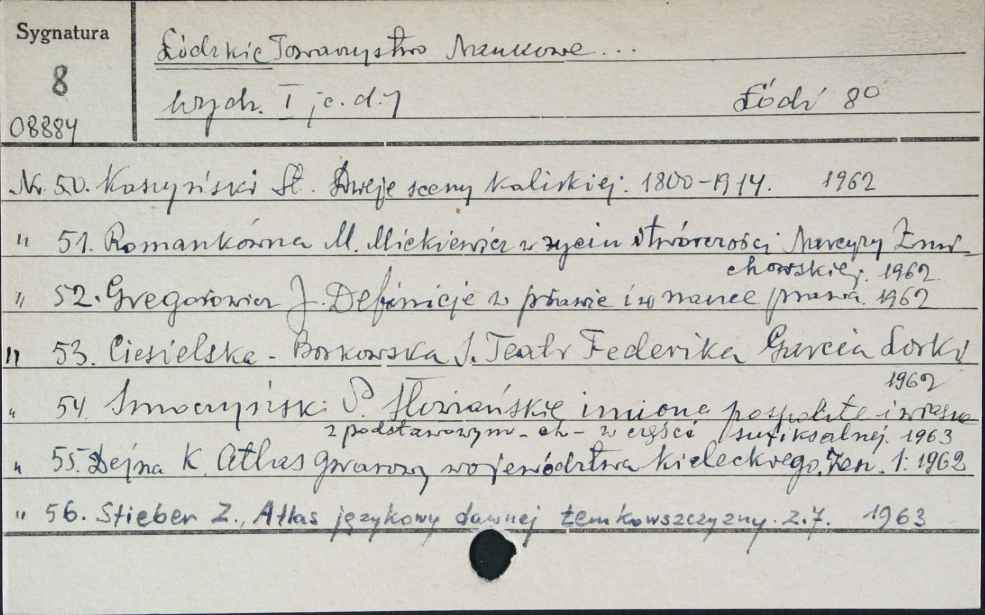 Sygnatura
8
08884
Łódzkie Towarzystwo Naukowe...
Wydz. I /c.d./
Łódź 8°
Nr. 50. Kaszyński St. Dzieje sceny kaliskiej. 1800-1914. 1962
" 51. Romankówna M. Mickiewicz w życiu i twórczości Narcyzy Żmi-
chowskiej. 1962
" 52. Gregorowicz J. Definicje w prawie i w nauce prawa. 1962
" 53. Ciesielska-Borkowska S. Teatr Federika Garcia Lorki
1962
" 54 Smoczyński P. Słowiańskie imiona pospolite i własne
z podstawowym -ch- w części sufiksalnej. 1963
" 55. Dejna K. Atlas gwarowy województwa kieleckiego. Zesz. 1. 1962
" 56. Stieber Z., Atlas językowy dawnej Łemkowszczyzny. z. 7. 1963